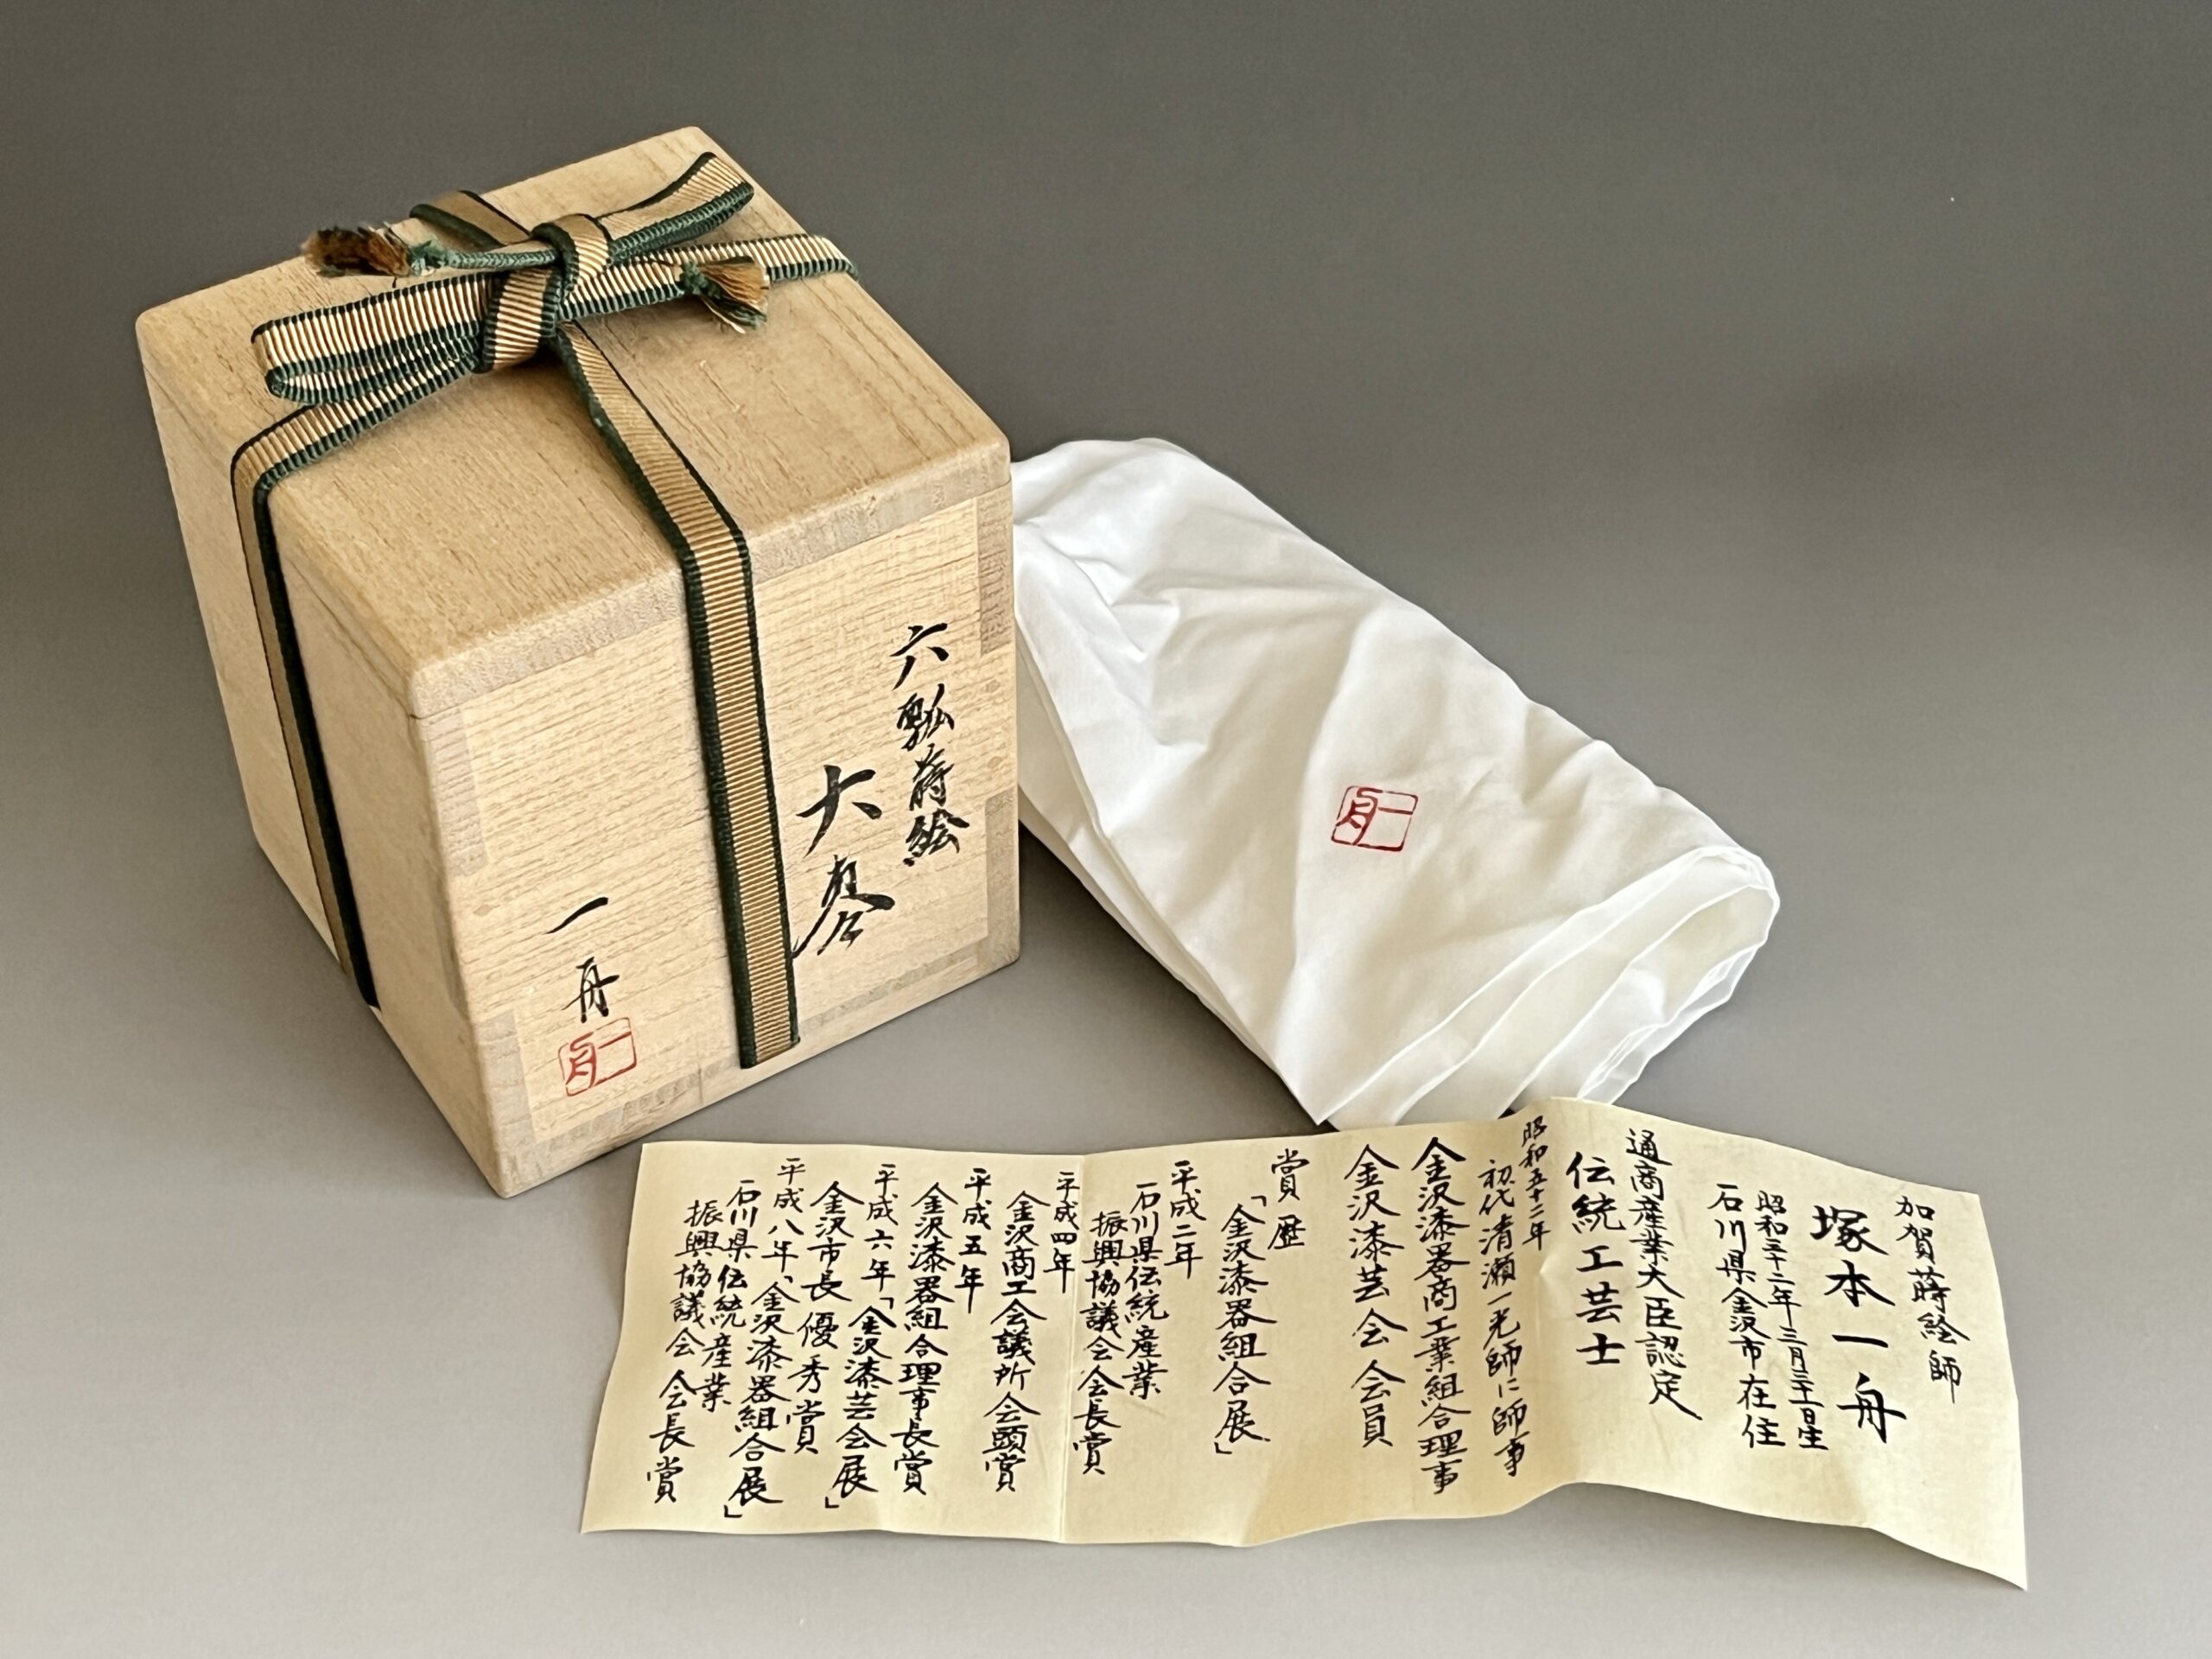 六瓢蒔絵
大棗
一舟
一舟
一舟
加賀蒔絵師
塚本一舟
昭和三十二年三月三十日生
石川県金沢市在住
通商産業大臣認定
伝統工芸士
昭和五十二年
初代清瀬一光師に師事
金沢漆器商工業組合理事
金沢漆芸会会員
賞歴
「金沢漆器組合展」
平成二年
石川県伝統産業
振興協議会会長賞
平成四年
金沢商工会議所会頭賞
平成五年
金沢漆器組合理事長賞
平成六年「金沢漆芸会展」
金沢市長優秀賞
平成八年、金沢漆器組合展」
石川県伝統産業
振興協議会会長賞